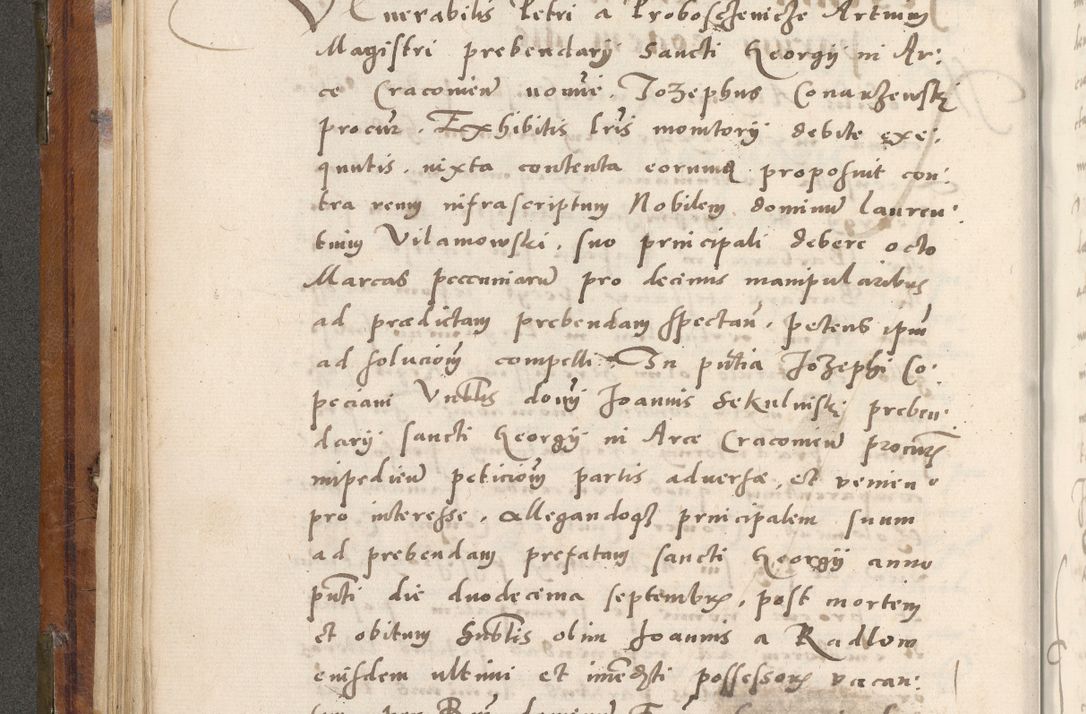 Venerabilis Petri a Proboscżevicże Artium
Magistri prebendarÿ Sancti Georgÿ in Ar:
ce Cracovien̄ nomīe. Jozephus Conarżewskį
procur̄. Exhibitis lr̄is monitorÿ debite exe:
quutis. iuxta contenta eorumq̃ proposuit con:
tra reum infrascriptum Nobilem dominū lauren:
tium Vilamowski. suo principali debere octo
Marcas peccuniarū pro decimis manipularibus
ad prædictam prebendam spectan̄. petens ip̄m
ad soluciōm compelli. In pn̄tia Jozephi Co:
peciani Vn̄blis don̄j Joannis Sekulinskį preben:
darÿ sancti Georgÿ in Arce Cracovien̄ procur̄
impedien̄ peticiōm partis adversæ, et venien̄
pro interesse. allegandoq̃ principalem suum
ad prebendam prefatam sancti Georgÿ anno
pn̄ti die duodecima septembr̃, post mortem
et obitum hn̄blis olim Joannis a Radlow
eiusdem ultimi et imēd̃ti possessor̃ vacan: